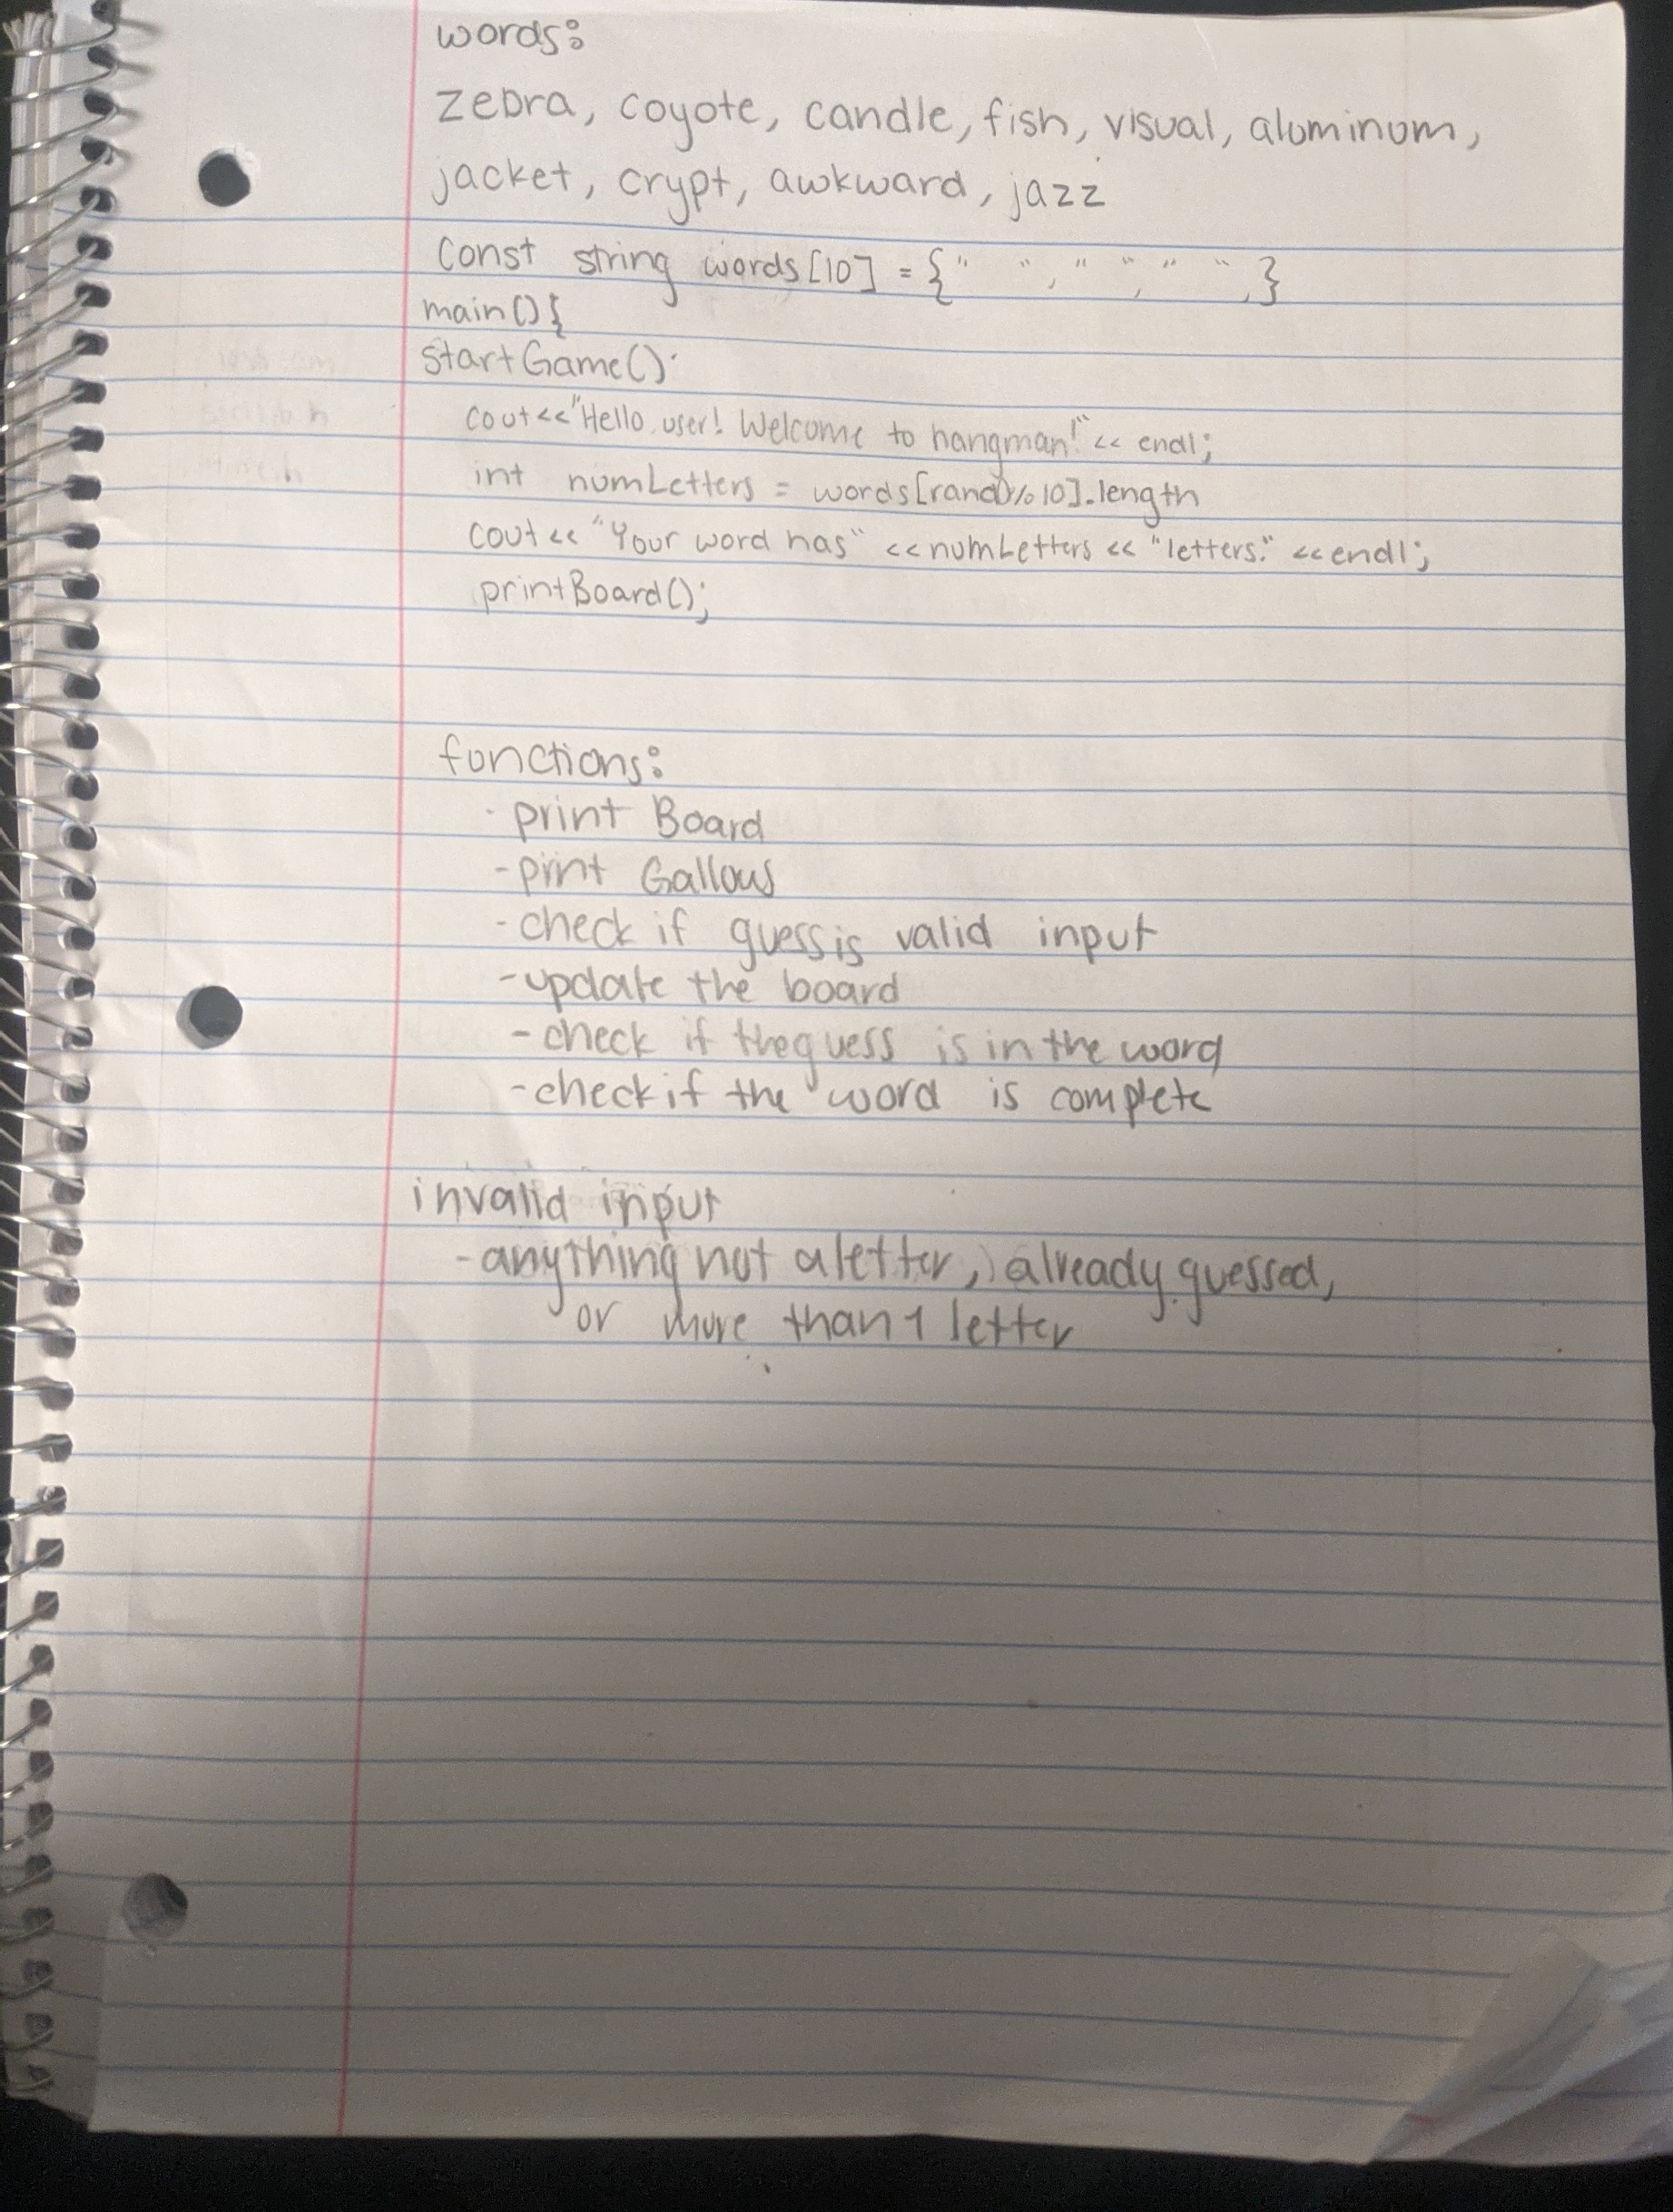 words:
zebra, coyote, candle, fish, visual, aluminum,
jacket, crypt, awkward, jazz
const string words[10] = {" ", " ", " ",}
main(){
startGame():
cout<<"Hello user! Welcome to hangman!" << endl;
int numLetters = words[rand()%10].length
cout << "Your word has" << numLetters << "letters." << endl;
printBoard();
functions:
- print Board
- print Gallows
- check if guess is valid input
- update the board
- check if the guess is in the word
- check if the word is complete
invalid input
- anything not a letter, already guessed,
or more than 1 letter